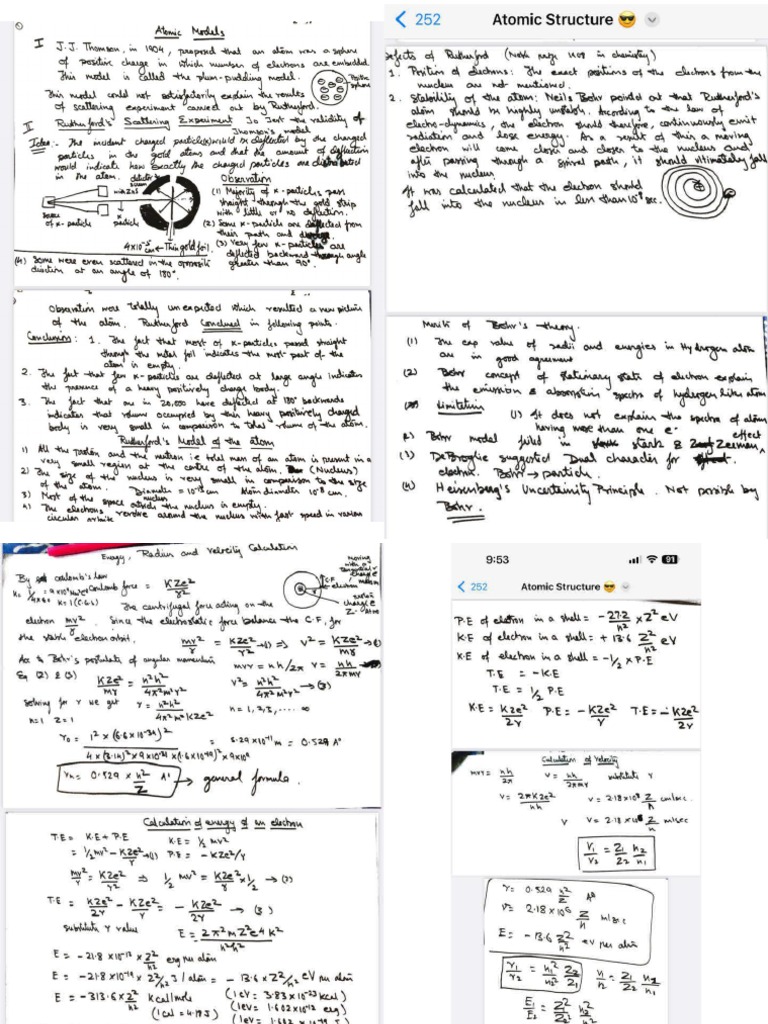 Atomic Models
I J.J. Thomson, in 1904, proposed that an atom was a sphere
of positive charge in which number of electrons are embedded.
This model is called the plum-pudding model.
Positive
sphere
This model could not satisfactorily explain the results
of scattering experiment carried out by Rutherford.
II Rutherford's Scattering Experiment To Test the validity of
Thomson's model
Idea:- The incident charged particles would be deflected by the charged
particles in the gold atoms and that the amount of deflection
would indicate how exactly the charged particles are distributed
in the atom.
detector
ZnS
Source
of α-particle
α
particle
Thin gold foil
Observation
(1) Majority of α-particles pass
straight through the gold strip
with little or no deflection.
(2) Some α-particle are deflected from
their path and
(3) Very few α-particles are
deflected backward through angle
greater than 90°.
(4) Some were even scattered in the opposite
direction at an angle of 180°.
Observation were totally unexpected which resulted a new picture
of the atom. Rutherford Concluded in following points.
Conclusions: 1. The fact that most of α-particles passed straight
through the metal foil indicates the most part of the
atom is empty.
2. The fact that few α-particles are deflected at large angle indicates
the presence of a heavy positively charge body.
3. The fact that one in 20,000 have deflected at 180° backwards
indicates that volume occupied by this heavy positively charged
body is very small in comparison to total volume of the atom.
Rutherford's Model of the atom
1) All the proton and the neutron i.e total mass of an atom is present in a
very small region at the centre of the atom. (Nucleus)
2) The size of the nucleus is very small in comparison to the size
of the atom. Diameter = 10⁻¹³ cm Atom diameter 10⁻⁸ cm.
nucleus
3) Most of the space outside the nucleus is empty.
4) The electrons revolve around the nucleus with fast speed in various
circular orbits
252 Atomic Structure 😎
Defects of Rutherford
1. Position of electrons: The exact positions of the electrons from the
nucleus are not mentioned.
2. Stability of the atom: Neils Bohr pointed out that Rutherford's
atom should be highly unstable. According to the law of
electro-dynamics, the electron should therefore, continuously emit
radiation and lose energy. As a result of this a moving
electron will come closer and closer to the nucleus and
after passing through a spiral path, it should ultimately fall
into the nucleus.
It was calculated that the electron should
fall into the nucleus in less than 10⁻⁸ sec.
Merits of Bohr's theory.
(1) The exp value of radii and energies in Hydrogen atom
are in good agreement
(2) Bohr concept of stationary state of electron explain
the emission & absorption spectra of hydrogen like atom
Limitation
(1) It does not explain the spectra of atom
having more than one e⁻
2) Bohr model failed in stark & Zeeman effect
(3) DeBroglie suggested Dual character for
electron. Bohr → particle.
(4) Heisenberg's Uncertainity Principle. Not possible by
Bohr.
Energy, Radius and Velocity Calculation
By coulomb's law
Coulomb force = KZe²/r²
K = 1 (C.G.S)
The centrifugal force acting on the
electron mv²/r. Since the electrostatic force balance the C.F, for
the stable electron orbit.
mv²/r = KZe²/r² →(1) ⇒ v² = KZe²/mr →(2)
Acc to Bohr's postulate of angular momentum
mvr = nh/2π v = nh/2πmr
Eq (2) & (3) KZe²/mr = n²h²/4π²m²r² v² = n²h²/4π²m²r² →(3)
Solving for r we get r = n²h²/4π²mKZe² n = 1, 2, 3, ..... ∞
n=1 Z=1
r₀ = 1² × (6.6×10⁻³⁴)² / 4×(3.14)²×9×10⁻³¹×(1.6×10⁻¹⁹)²×9×10⁹ = 5.29×10⁻¹¹ m = 0.529 A°
rₙ = 0.529 × n²/Z A° → general formula.
Calculation of energy of an electron
T.E = K.E + P.E K.E = ½ mv²
= ½mv² − KZe²/r →(1) P.E = −KZe²/r
mv²/r = KZe²/r² ⇒ ½ mv² = KZe²/r × ½ →(2)
T.E = KZe²/2r − KZe²/r = − KZe²/2r →(3)
substitute r value E = − 2π²mZ²e⁴K²/n²h²
E = −21.8×10⁻¹² × Z²/n² erg per atom
E = −21.8×10⁻¹⁹ × Z²/n² J/atom = −13.6 × Z²/n² eV per atom
E = −313.6 × Z²/n² kcal/mole (1eV = 3.83×10⁻²³ kcal)
(1 cal = 4.18J) (1eV = 1.602×10⁻¹² erg)
(1eV = 1.602 × 10⁻¹⁹ J)
9:53 91
252 Atomic Structure 😎
P.E of electron in a shell = −27.2/n² × Z² eV
K.E of electron in a shell = + 13.6 Z²/n² eV
K.E of electron in a shell = −1/2 × P.E
T.E = −K.E
T.E = ½ P.E
K.E = KZe²/2r P.E = −KZe²/r T.E = −KZe²/2r
Calculation of Velocity
mvr = nh/2π v = nh/2πmr substitute r
v = 2πKZe²/nh v = 2.18×10⁸ Z/n cm/sec.
v v = 2.18×10⁶ Z/n m/sec
V₁/V₂ = Z₁/Z₂ n₂/n₁
r = 0.529 n²/Z A°
v = 2.18×10⁶ Z/n m/sec
E = −13.6 Z²/n² eV per atom
r₁/r₂ = n₁²/n₂² Z₂/Z₁
E₁/E₂ = Z₁²/Z₂² n₂²/n₁²